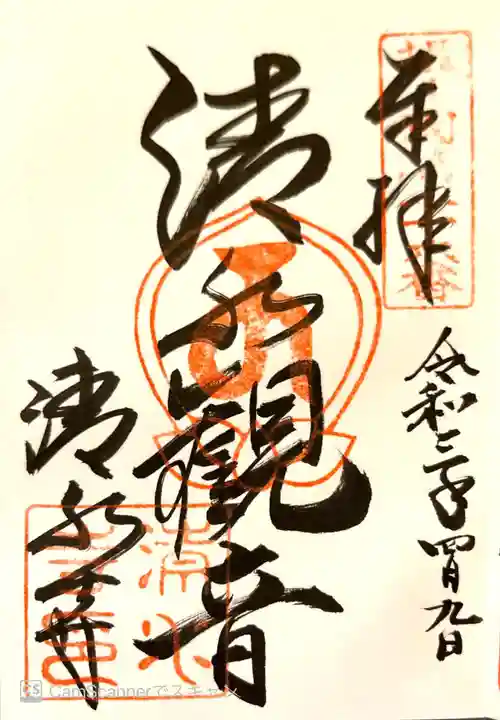 奉拝
令和三年四月九日
清水観音
清水寺
CamScannerでスキャン